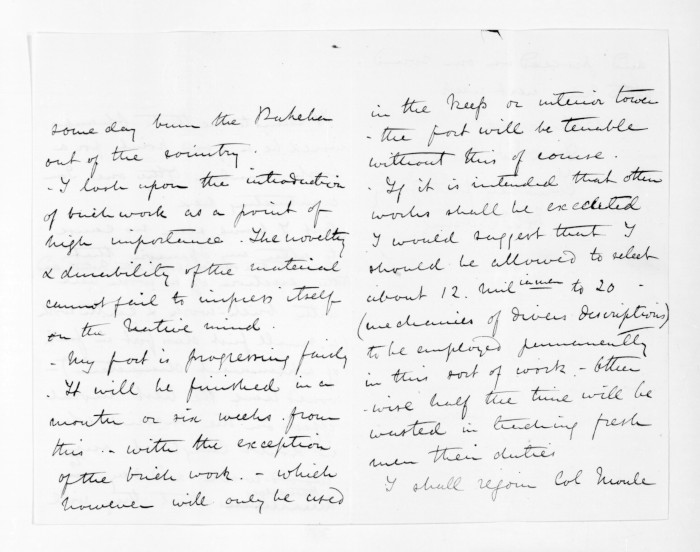 some day burn the Pakeha
out of the country.
- I look upon the introduction
of brick work as a point of
high importance. The novelty
& durability of the material
cannot fail to impress itself
on the Native mind.
- My fort is progressing fairly
. It will be finished in a
month or six weeks from
this . - with the exception
of the brick work. - which
however will only be used
in the keeps or interior tower
- the fort will be tenable
without this of course.
- If it is intended that other
works shall be executed
I would suggest that I
should be allowed to select
about 12. Militiamen to 20 -
(mechanics of divers descriptions)
to be employed permanently
in this sort of work. - Other
- wise half the time will be
wasted in teaching fresh
men their duties
I shall rejoin Col Moule